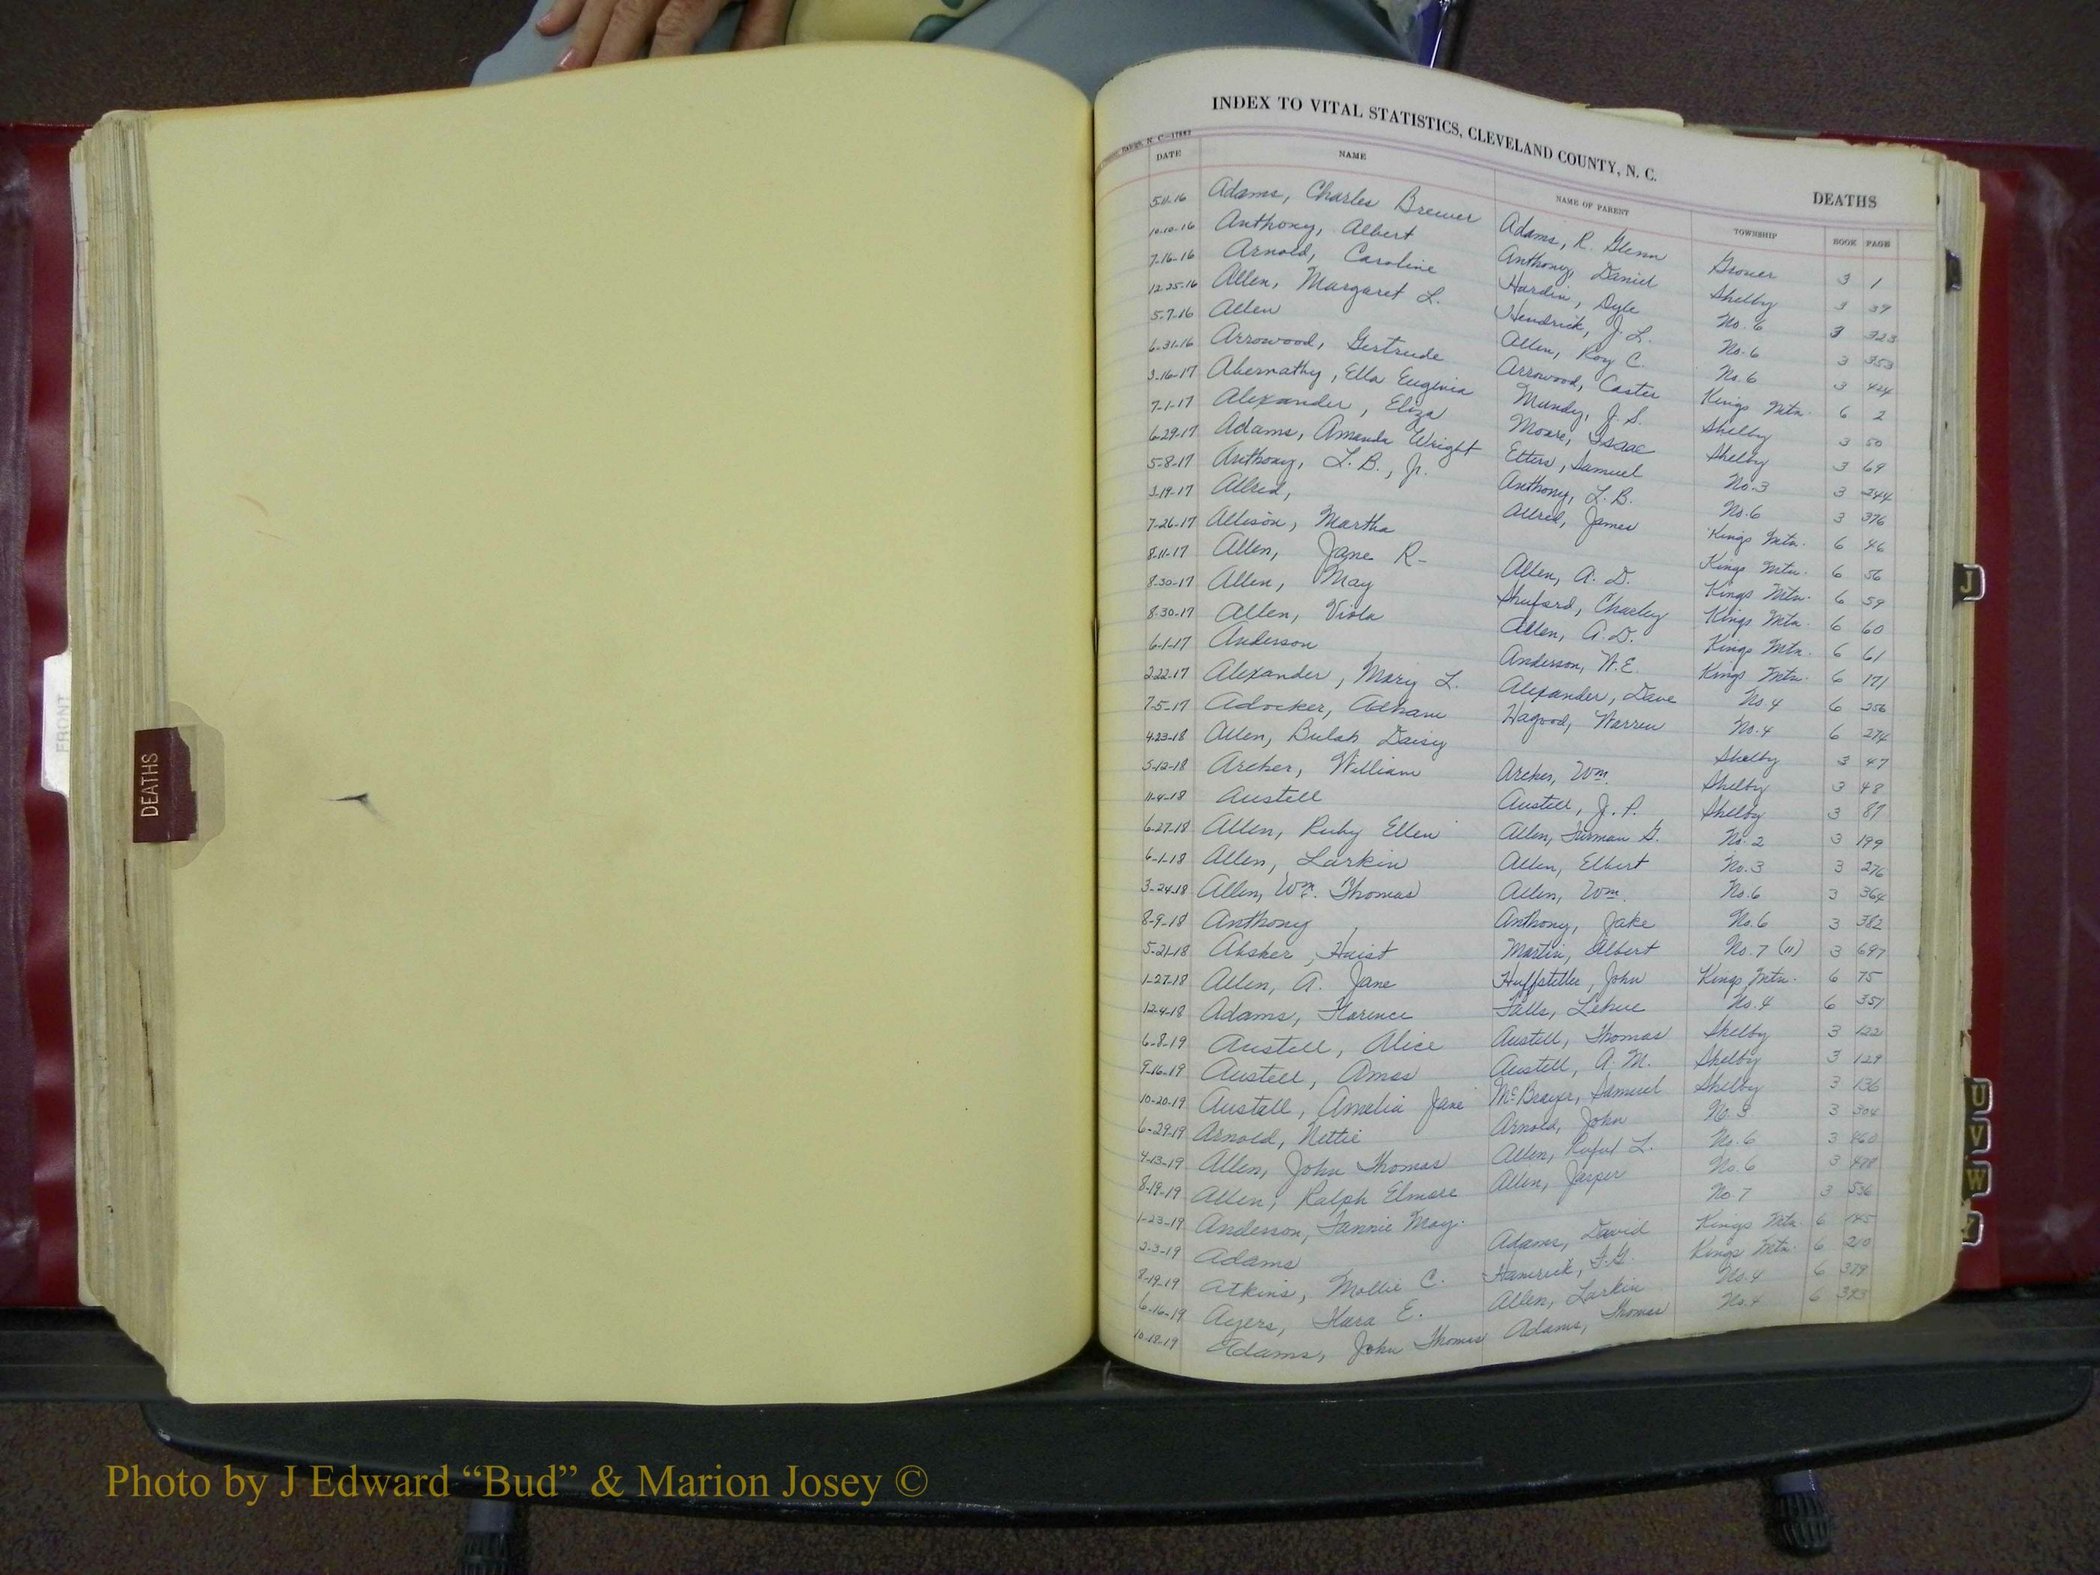 INDEX TO VITAL STATISTICS, CLEVELAND COUNTY, N. C.
DEATHS
Raleigh, N. C.—17882
DATE NAME NAME OF PARENT TOWNSHIP BOOK PAGE
5-11-16 Adams, Charles Brewer Adams, R. Glenn Grover 3 1
10-10-16 Anthony, Albert Anthony, Daniel Shelby 3 39
7-16-16 Arnold, Caroline Hardin, Dyle No. 6 3 323
12-25-16 Allen, Margaret L. Hendrick, J. L. No. 6 3 353
5-7-16 Allen Allen, Roy C. No. 6 3 424
6-31-16 Arrowood, Gertrude Arrowood, Caster Kings Mtn. 6 2
3-16-17 Abernathy, Ella Eugenia Mundy, J. S. Shelby 3 50
7-1-17 Alexander, Eliza Moore, Isaac Shelby 3 69
6-29-17 Adams, Amanda Wright Etters, Samuel No. 3 3 244
5-8-17 Anthony, L. B., Jr. Anthony, L. B. No. 6 3 376
3-19-17 Allred, Allred, James Kings Mtn. 6 46
7-26-17 Allison, Martha Kings Mtn. 6 56
8-11-17 Allen, Jane R- Allen, A. D. Kings Mtn. 6 59
8-30-17 Allen, May Shuford, Charley Kings Mtn. 6 60
8-30-17 Allen, Viola Allen, A. D. Kings Mtn. 6 61
6-1-17 Anderson Anderson, W. E. Kings Mtn. 6 171
2-22-17 Alexander, Mary L. Alexander, Dave No. 4 6 256
7-5-17 Adocker, Adham Hagood, Warren No. 4 6 274
4-23-18 Allen, Bulah Daisy Shelby 3 47
5-12-18 Archer, William Archer, Wm. Shelby 3 48
11-4-18 Austell Austell, J. P. Shelby 3 87
6-27-18 Allen, Ruby Ellen Allen, Furman G. No. 2 3 199
6-1-18 Allen, Larkin Allen, Elbert No. 3 3 276
3-24-18 Allen, Wm. Thomas Allen, Wm. No. 6 3 364
8-9-18 Anthony, Anthony, Jake No. 6 3 382
5-21-18 Absher, Huist Martin, Albert No. 7 (11) 3 697
1-27-18 Allen, A. Jane Huffstetler, John Kings Mtn. 6 75
12-4-18 Adams, Florence Falls, Lehue No. 4 6 351
6-8-19 Austell, Alice Austell, Thomas Shelby 3 122
9-16-19 Austell, Amos Austell, A. M. Shelby 3 129
10-20-19 Austell, Amelia Jane McBrayer, Samuel Shelby 3 136
6-29-19 Arnold, Nettie Arnold, John No. 3 3 304
4-13-19 Allen, John Thomas Allen, Rufus L. No. 6 3 460
8-19-19 Allen, Ralph Elmore Allen, Jasper No. 6 3 488
1-23-19 Anderson, Fannie May. No. 7 3 536
2-3-19 Adams Adams, David Kings Mtn. 6 145
8-19-19 Atkins, Mollie C. Hamrick, F. G. Kings Mtn. 6 210
6-16-19 Ayers, Flara E. Allen, Larkin No. 4 6 379
10-18-19 Adams, John Thomas Adams, Thomas No. 4 6 393
FRONT
DEATHS
J
U
V
W
Photo by J Edward “Bud” & Marion Josey ©